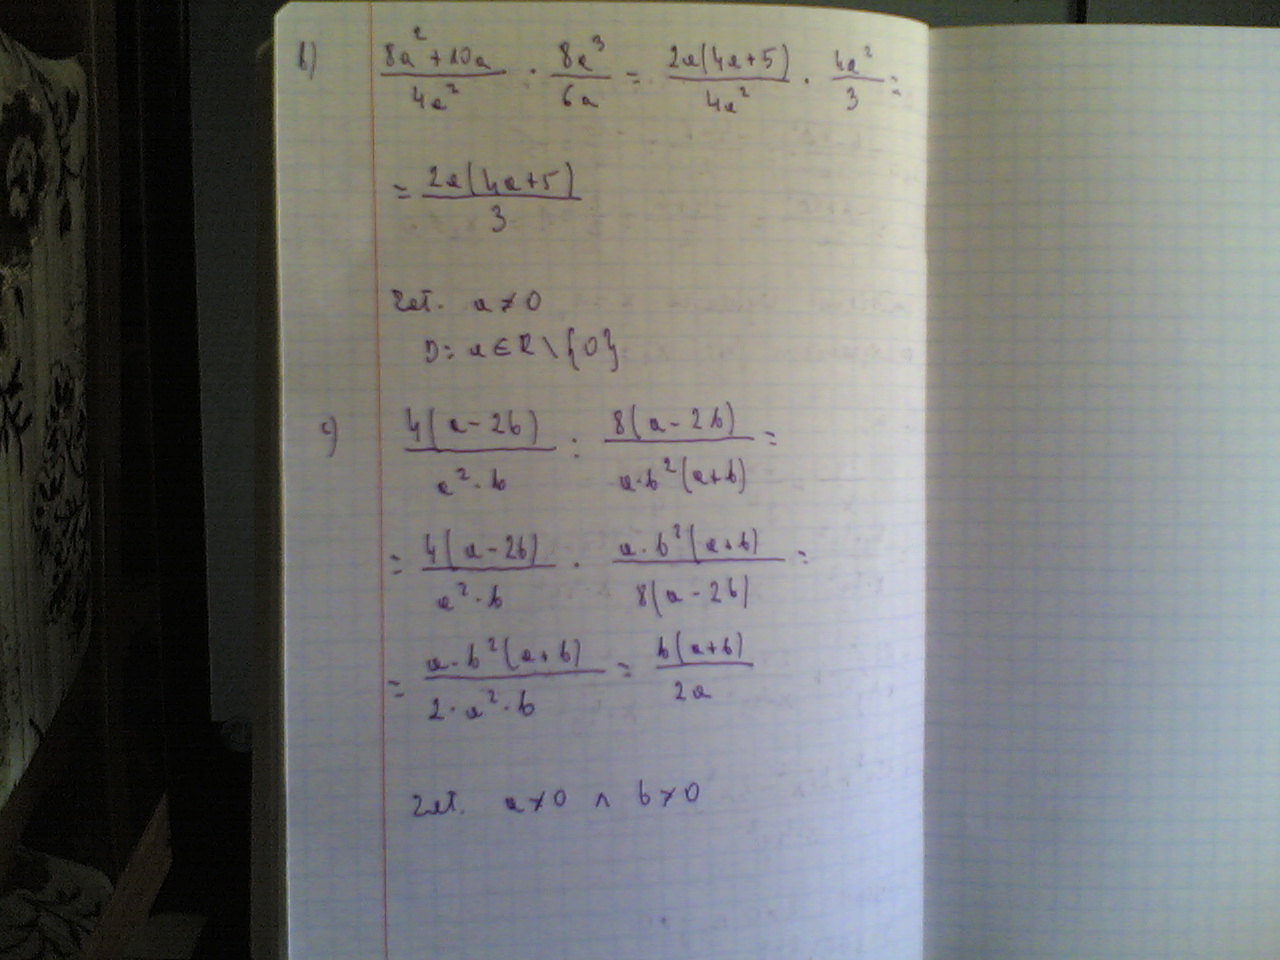 b) \frac{8a^2+10a}{4a^2} \cdot \frac{8a^3}{6a} = \frac{2a(4a+5)}{4a^2} \cdot \frac{4a^2}{3} =
= \frac{2a(4a+5)}{3}
Zał. a≠0
D: a∈R\{0}
c) \frac{4(a-2b)}{a^2 \cdot b} : \frac{8(a-2b)}{a \cdot b^2(a+b)} =
= \frac{4(a-2b)}{a^2 \cdot b} \cdot \frac{a \cdot b^2(a+b)}{8(a-2b)} =
= \frac{a \cdot b^2(a+b)}{2 \cdot a^2 \cdot b} = \frac{b(a+b)}{2a}
Zał. a≠0 ∧ b≠0